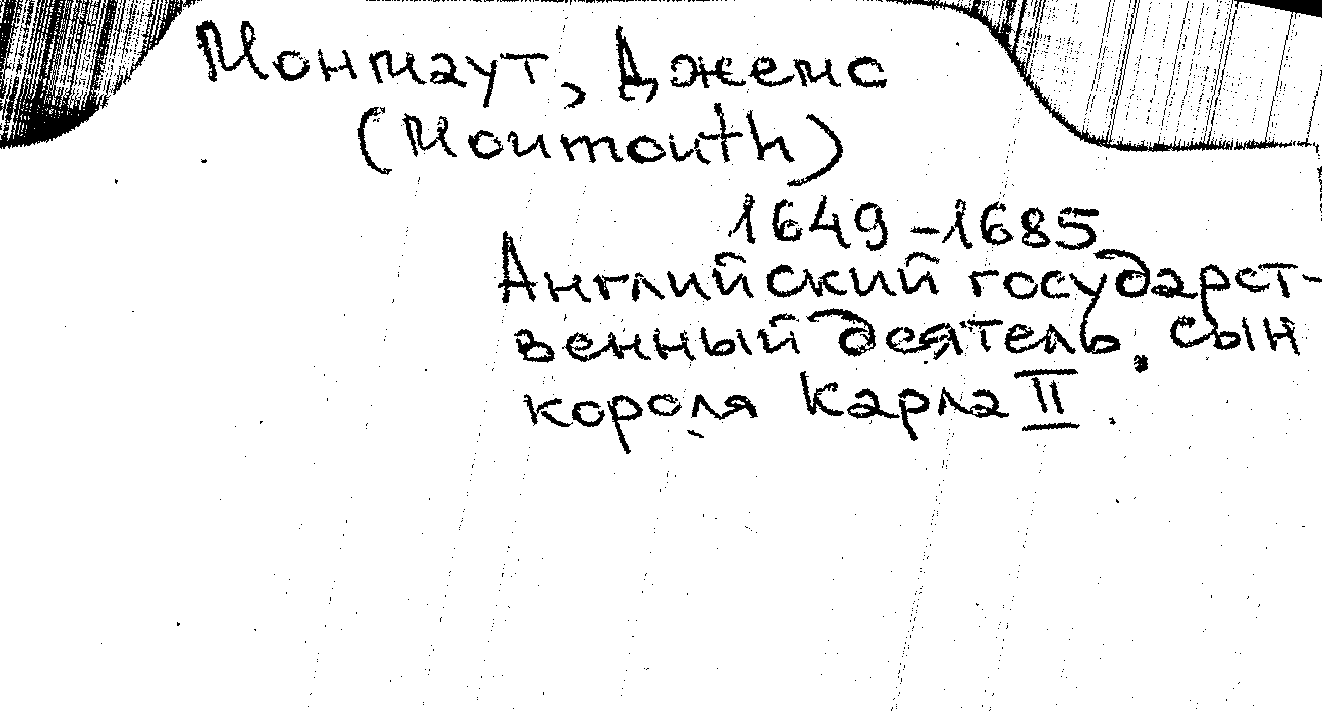 Монмаут, Джемс
(Monmouth)
1649-1685
Английский государст-
венный деятель. сын
короля Карла II.